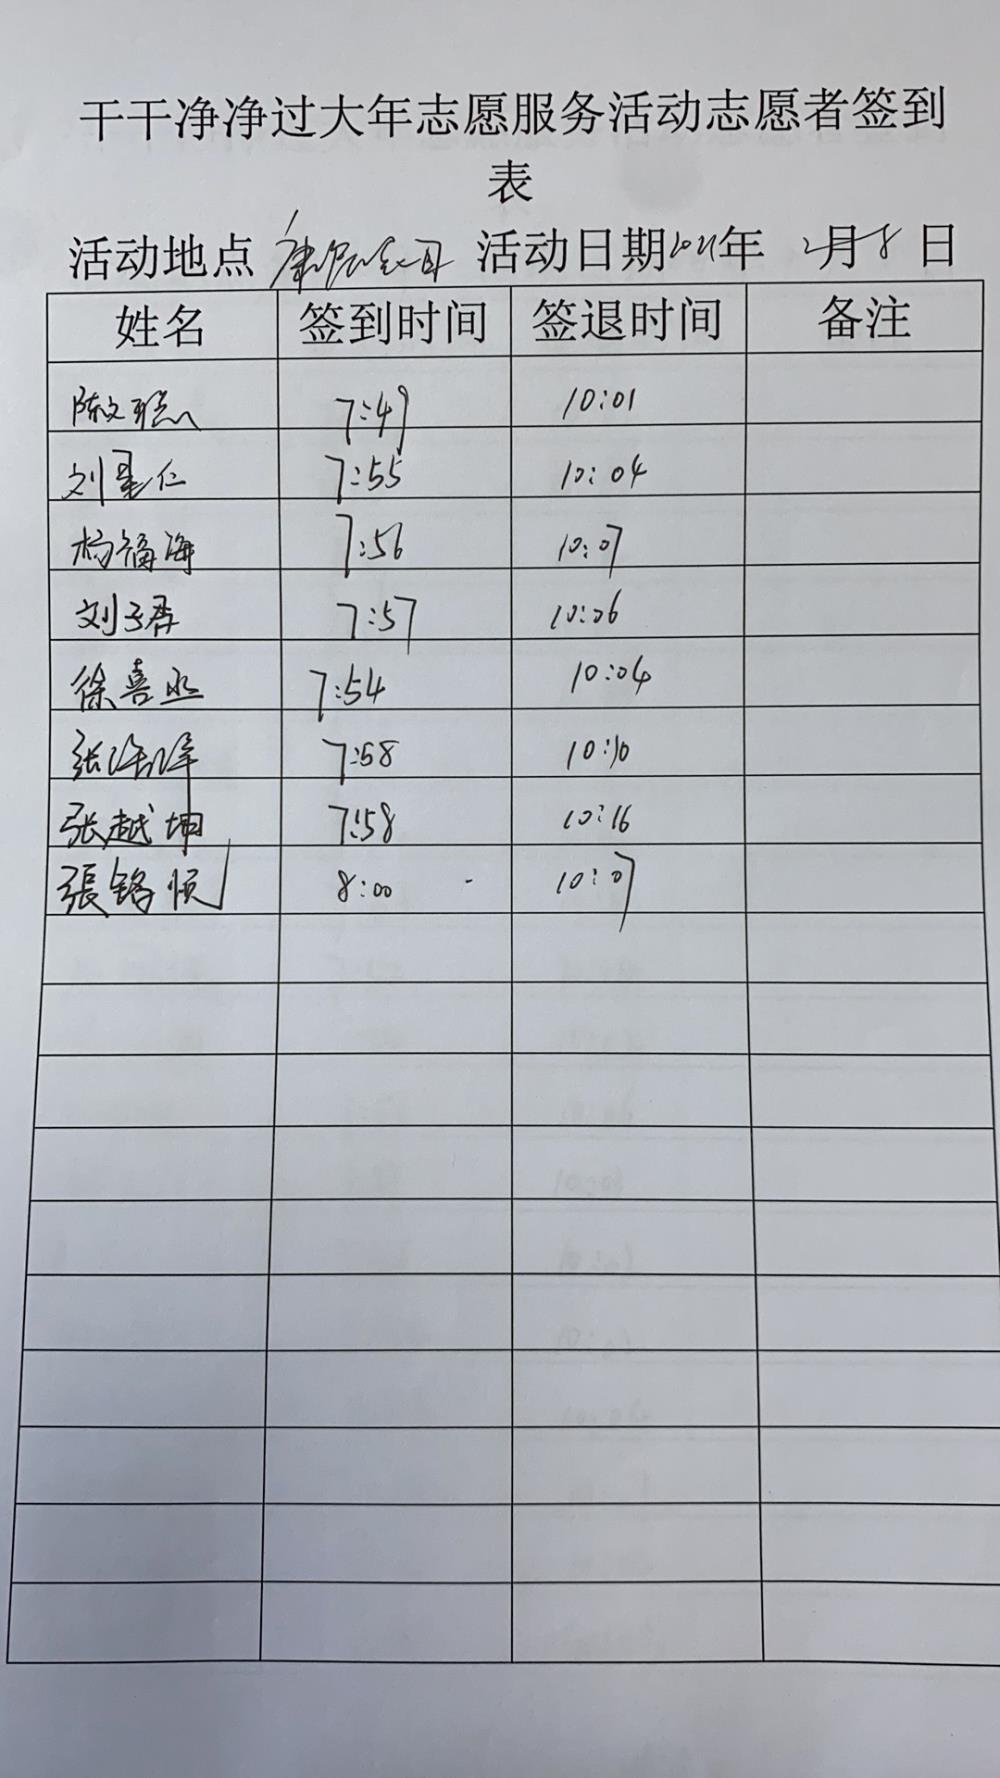 干干净净过大年志愿服务活动志愿者签到
表
活动地点 活动日期2021年 2月8日
姓名 签到时间 签退时间 备注
陈文聪 7:49 10:01
刘星仁 7:55 10:04
杨福海 7:56 10:07
刘子君 7:57 10:06
徐喜丞 7:54 10:04
张 7:58 10:10
张越坤 7:58 10:16
張铭 8:00 10:07